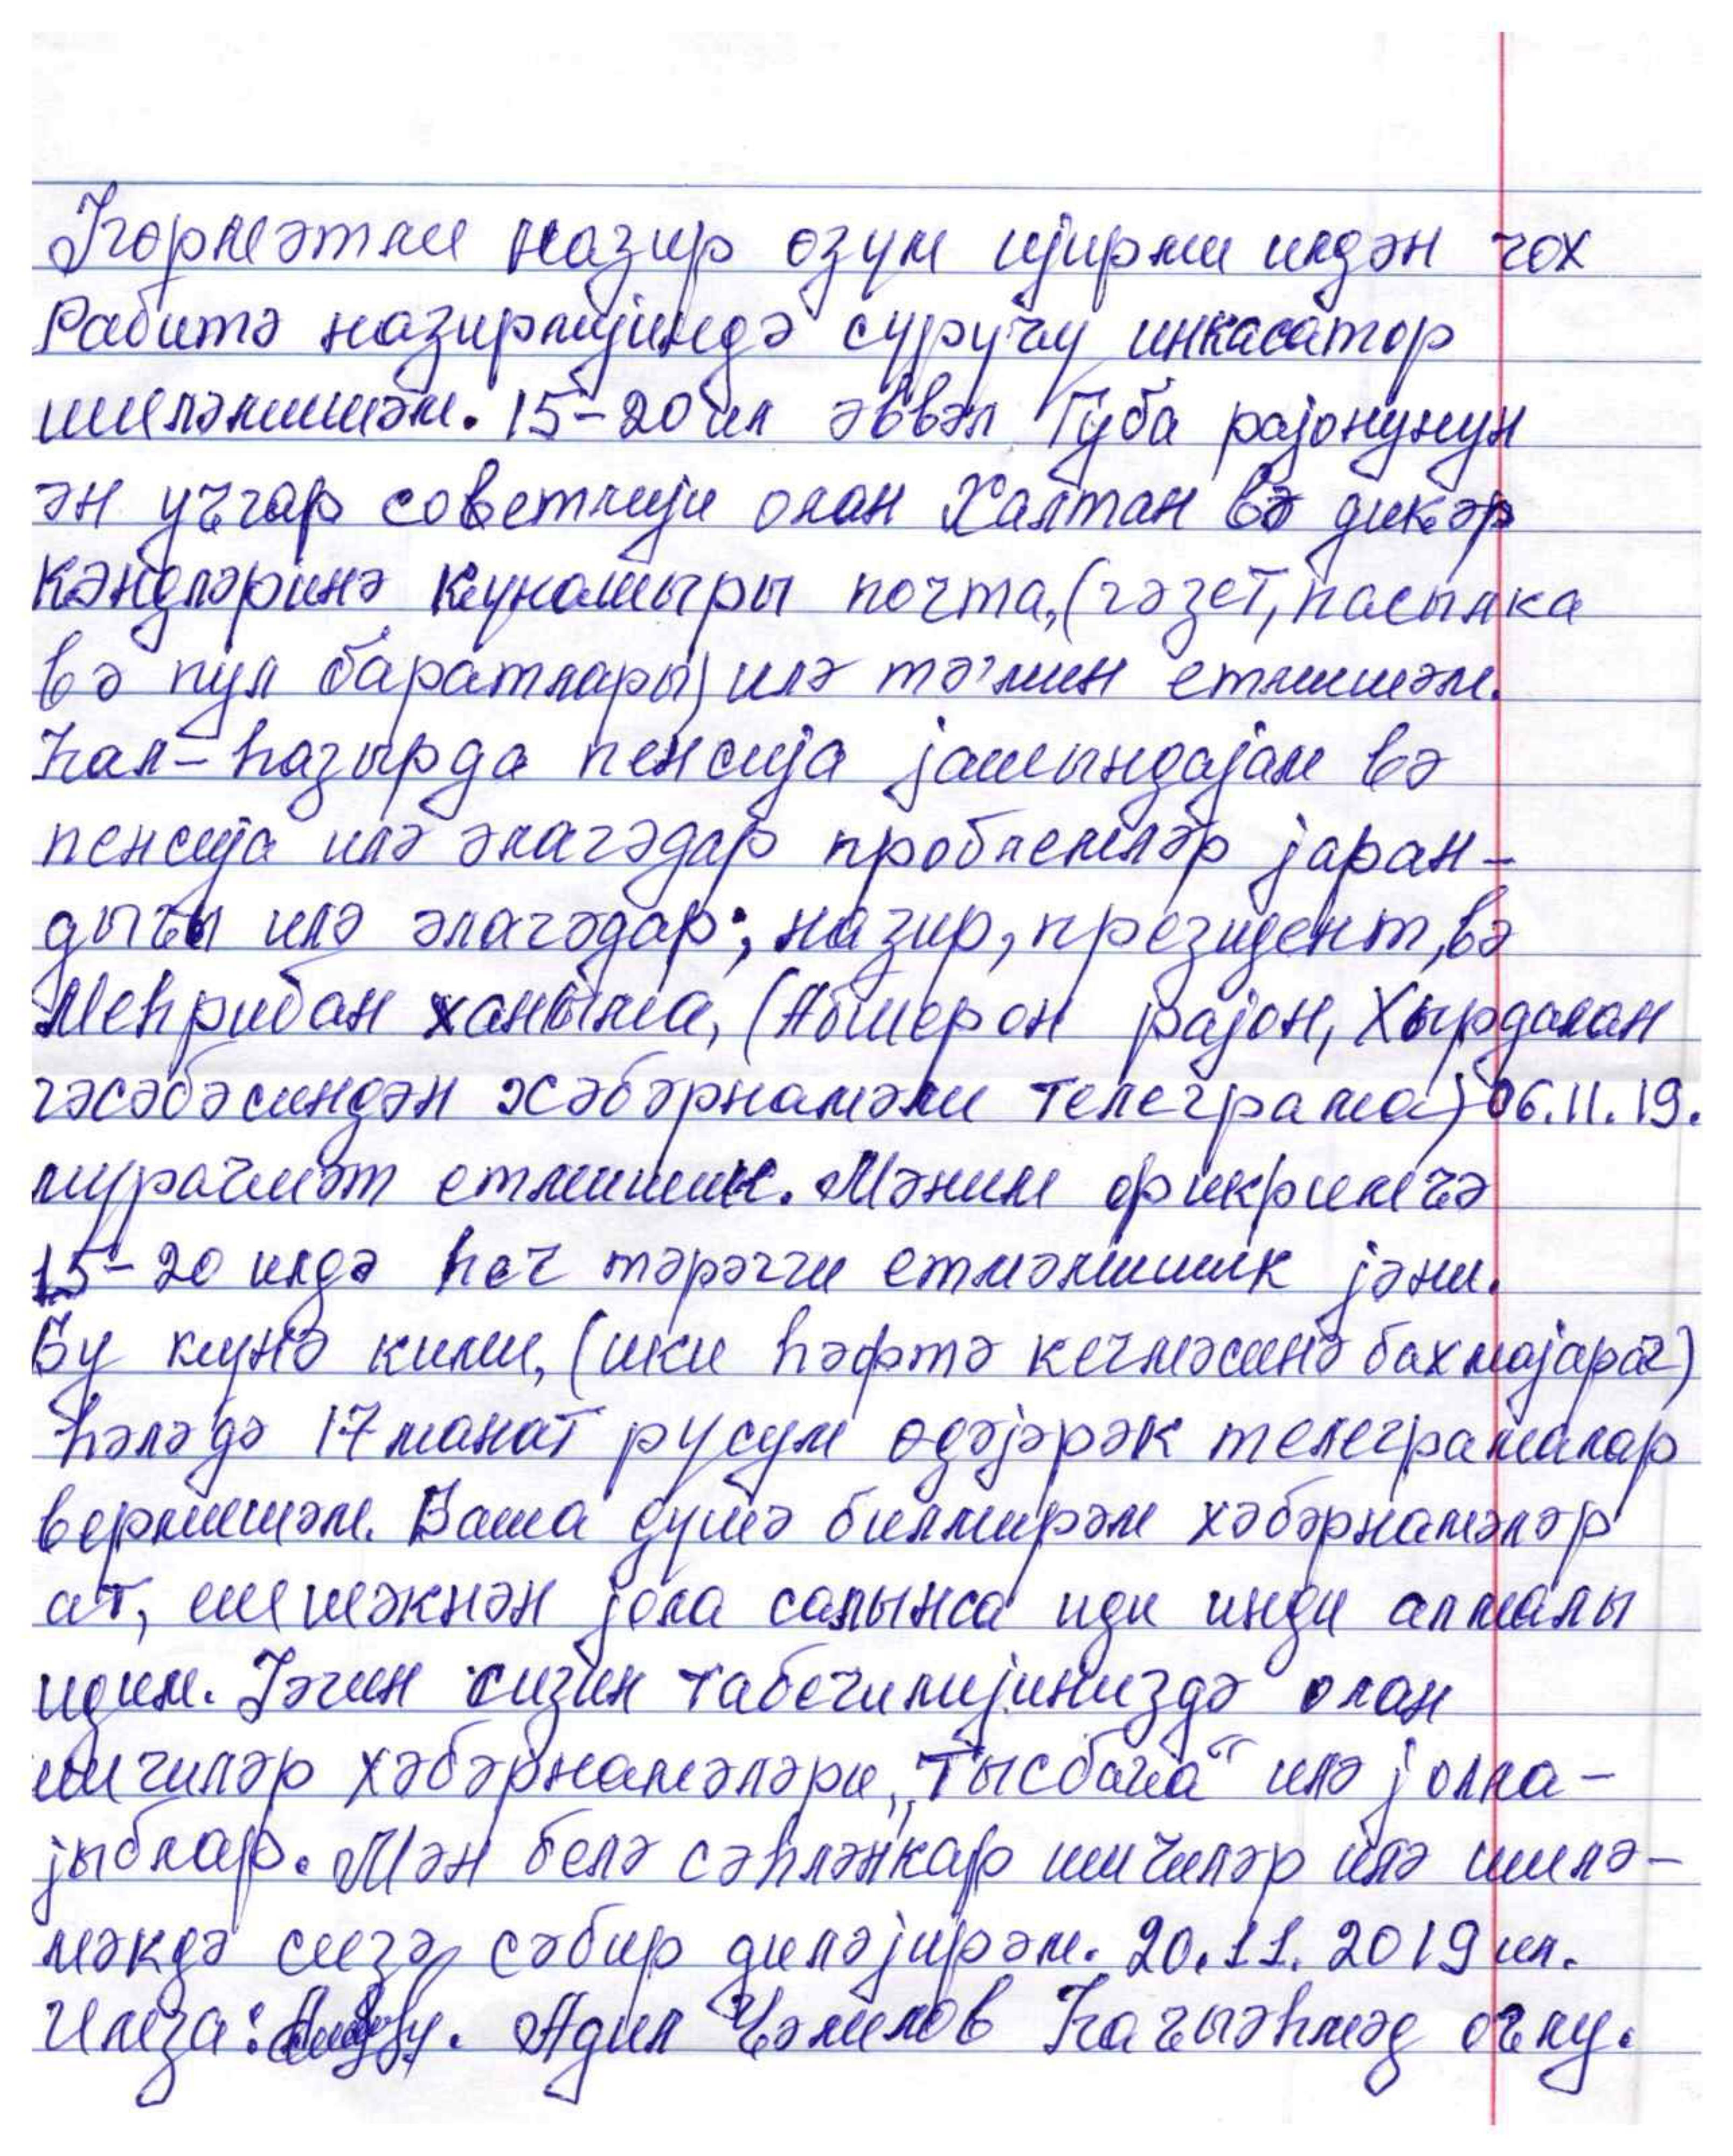 Һөрмәтли назир өзүм ијирми илдән чох
Рабитә назирлијиндә сүрүчү инкасатор
ишләмишәм. 15-20 ил әввәл Губа рајонунун
ән уҹгар советлији олан Халтан вә дикәр
Кәндләринә күнашыры почта, (гәзет, пасылка
вә пул баратлары) илә тә'мин етмишәм.
Һал-һазырда пенсија јашындајам вә
пенсија илә әлагәдар проблемләр јаран-
дығы илә әлагәдар; назир, президент, вә
Меһрибан ханыма, (Абшерон рајон, Хырдалан
гәсәбәсиндән хәбәрнамәли телеграма) 06.11.19.
мурачиәт етмишик. Мәним фикримчә
15-20 илдә һеч тәрәгги етмәмишик јәни.
Бу күнә кими, (ики һәфтә кечмәсинә бахмајараг)
һәләдә 17 манат русум өдәјәрәк телеграмалар
вермишәм. Баша дүшә билмирәм хәбәрнамәләр
ат, ешшәкнән јола салынса иди инди алмалы
идим. Јәгин сизин табечилијиниздә олан
ишчиләр хәбәрнамәләри „Тысбаға“ илә јолла-
јыблар. Мән белә сәһләнкар ишчиләр илә ишлә-
мәкдә сизә сәбир диләјирәм. 20.11.2019 ил.
Имза: Адил Ҹәмилов Һаҹыәһмәд оғлу.